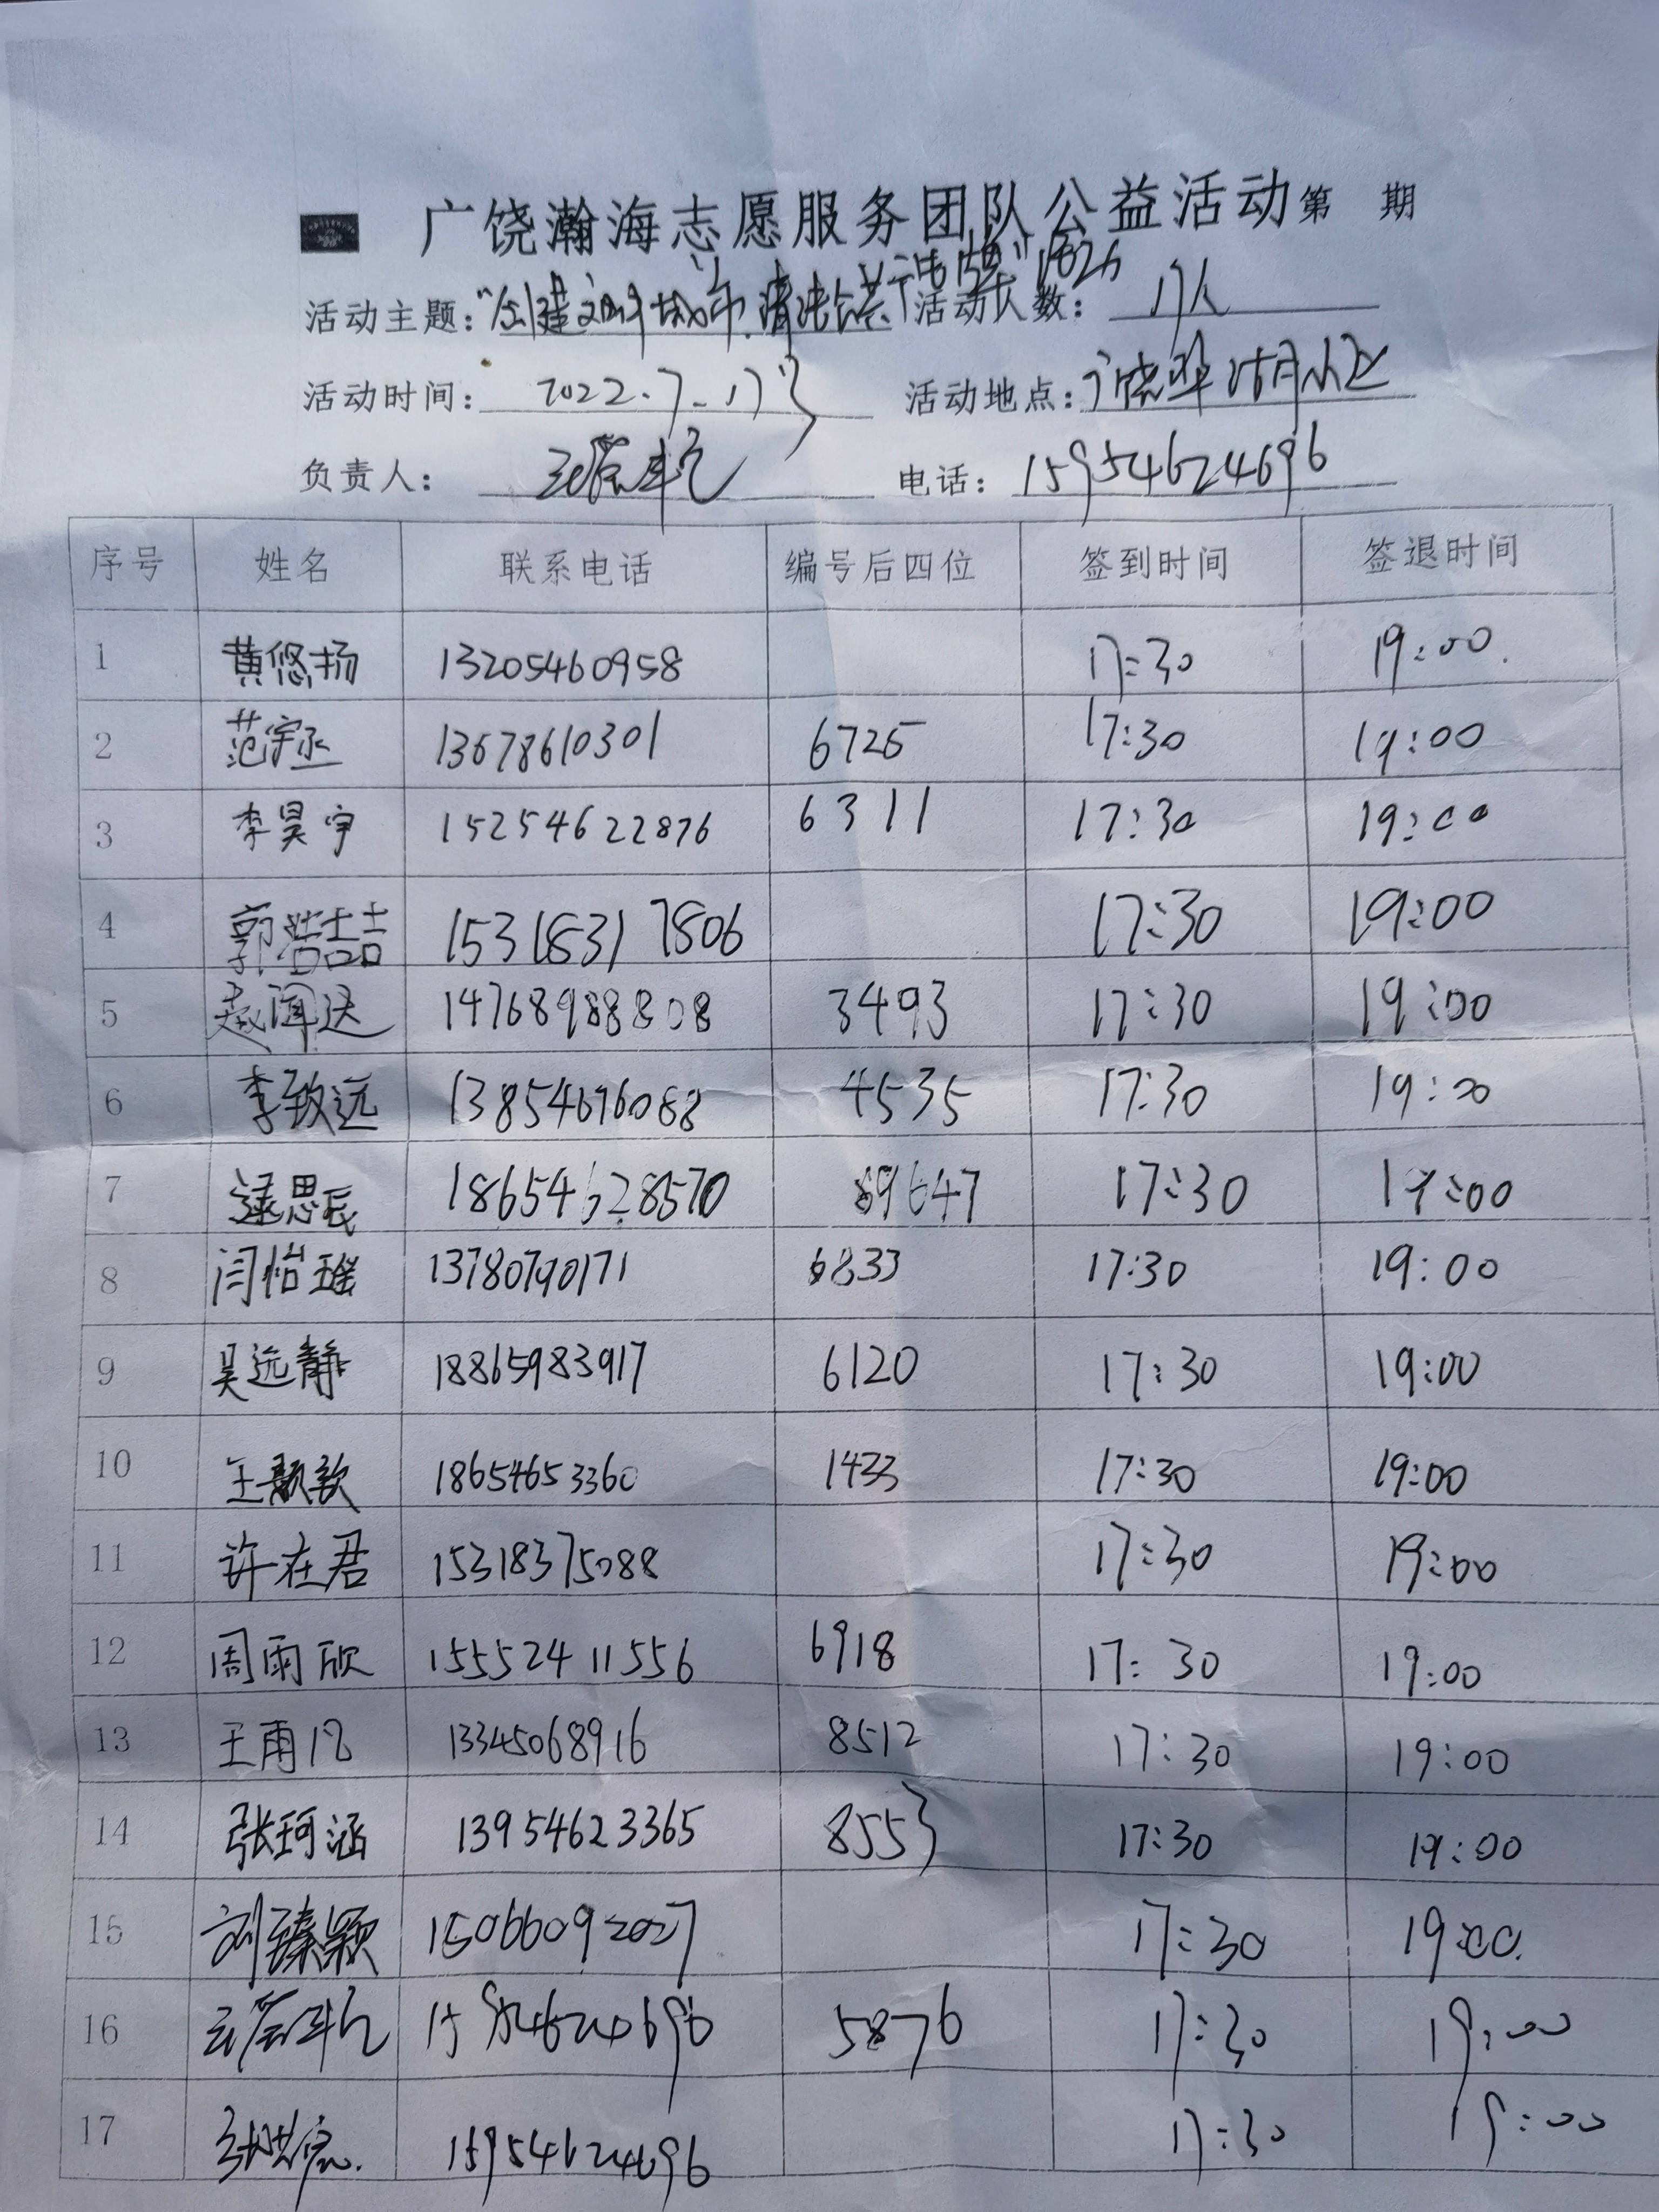 广饶瀚海志愿服务团队公益活动第 期
活动主题:"创建文明城市.清洁公共 活动人数: 17人
活动时间: 2022.7.17号 活动地点:广饶 月小区
负责人: 电话: 15954624696
序号 姓名 联系电话 编号后四位 签到时间 签退时间
1 黄悠扬 13205460958 17:30 19:00.
2 范宇丞 13678610301 6725 17:30 19:00
3 李昊宇 15254622876 6311 17:30 19:00
4 郭浩喆 15318317806 17:30 19:00
5 赵闻达 14768988808 3493 17:30 19:00
6 李致远 13854676088 4535 17:30 19:00
7 逯思辰 18654628570 89647 17:30 19:00
8 闫怡瑶 13780790171 6833 17:30 19:00
9 吴远静 18865983917 6120 17:30 19:00
10 王颢歆 18654653360 1433 17:30 19:00
11 许在君 15318375088 17:30 19:00
12 周雨欣 15552411556 6918 17:30 19:00
13 王雨凡 13345068916 8512 17:30 19:00
14 张珂涵 13954623365 8553 17:30 19:00
15 刘臻颖 15066092027 17:30 19:00.
16 15954624696 5876 17:30 19:00
17 15954624696 17:30 19:00